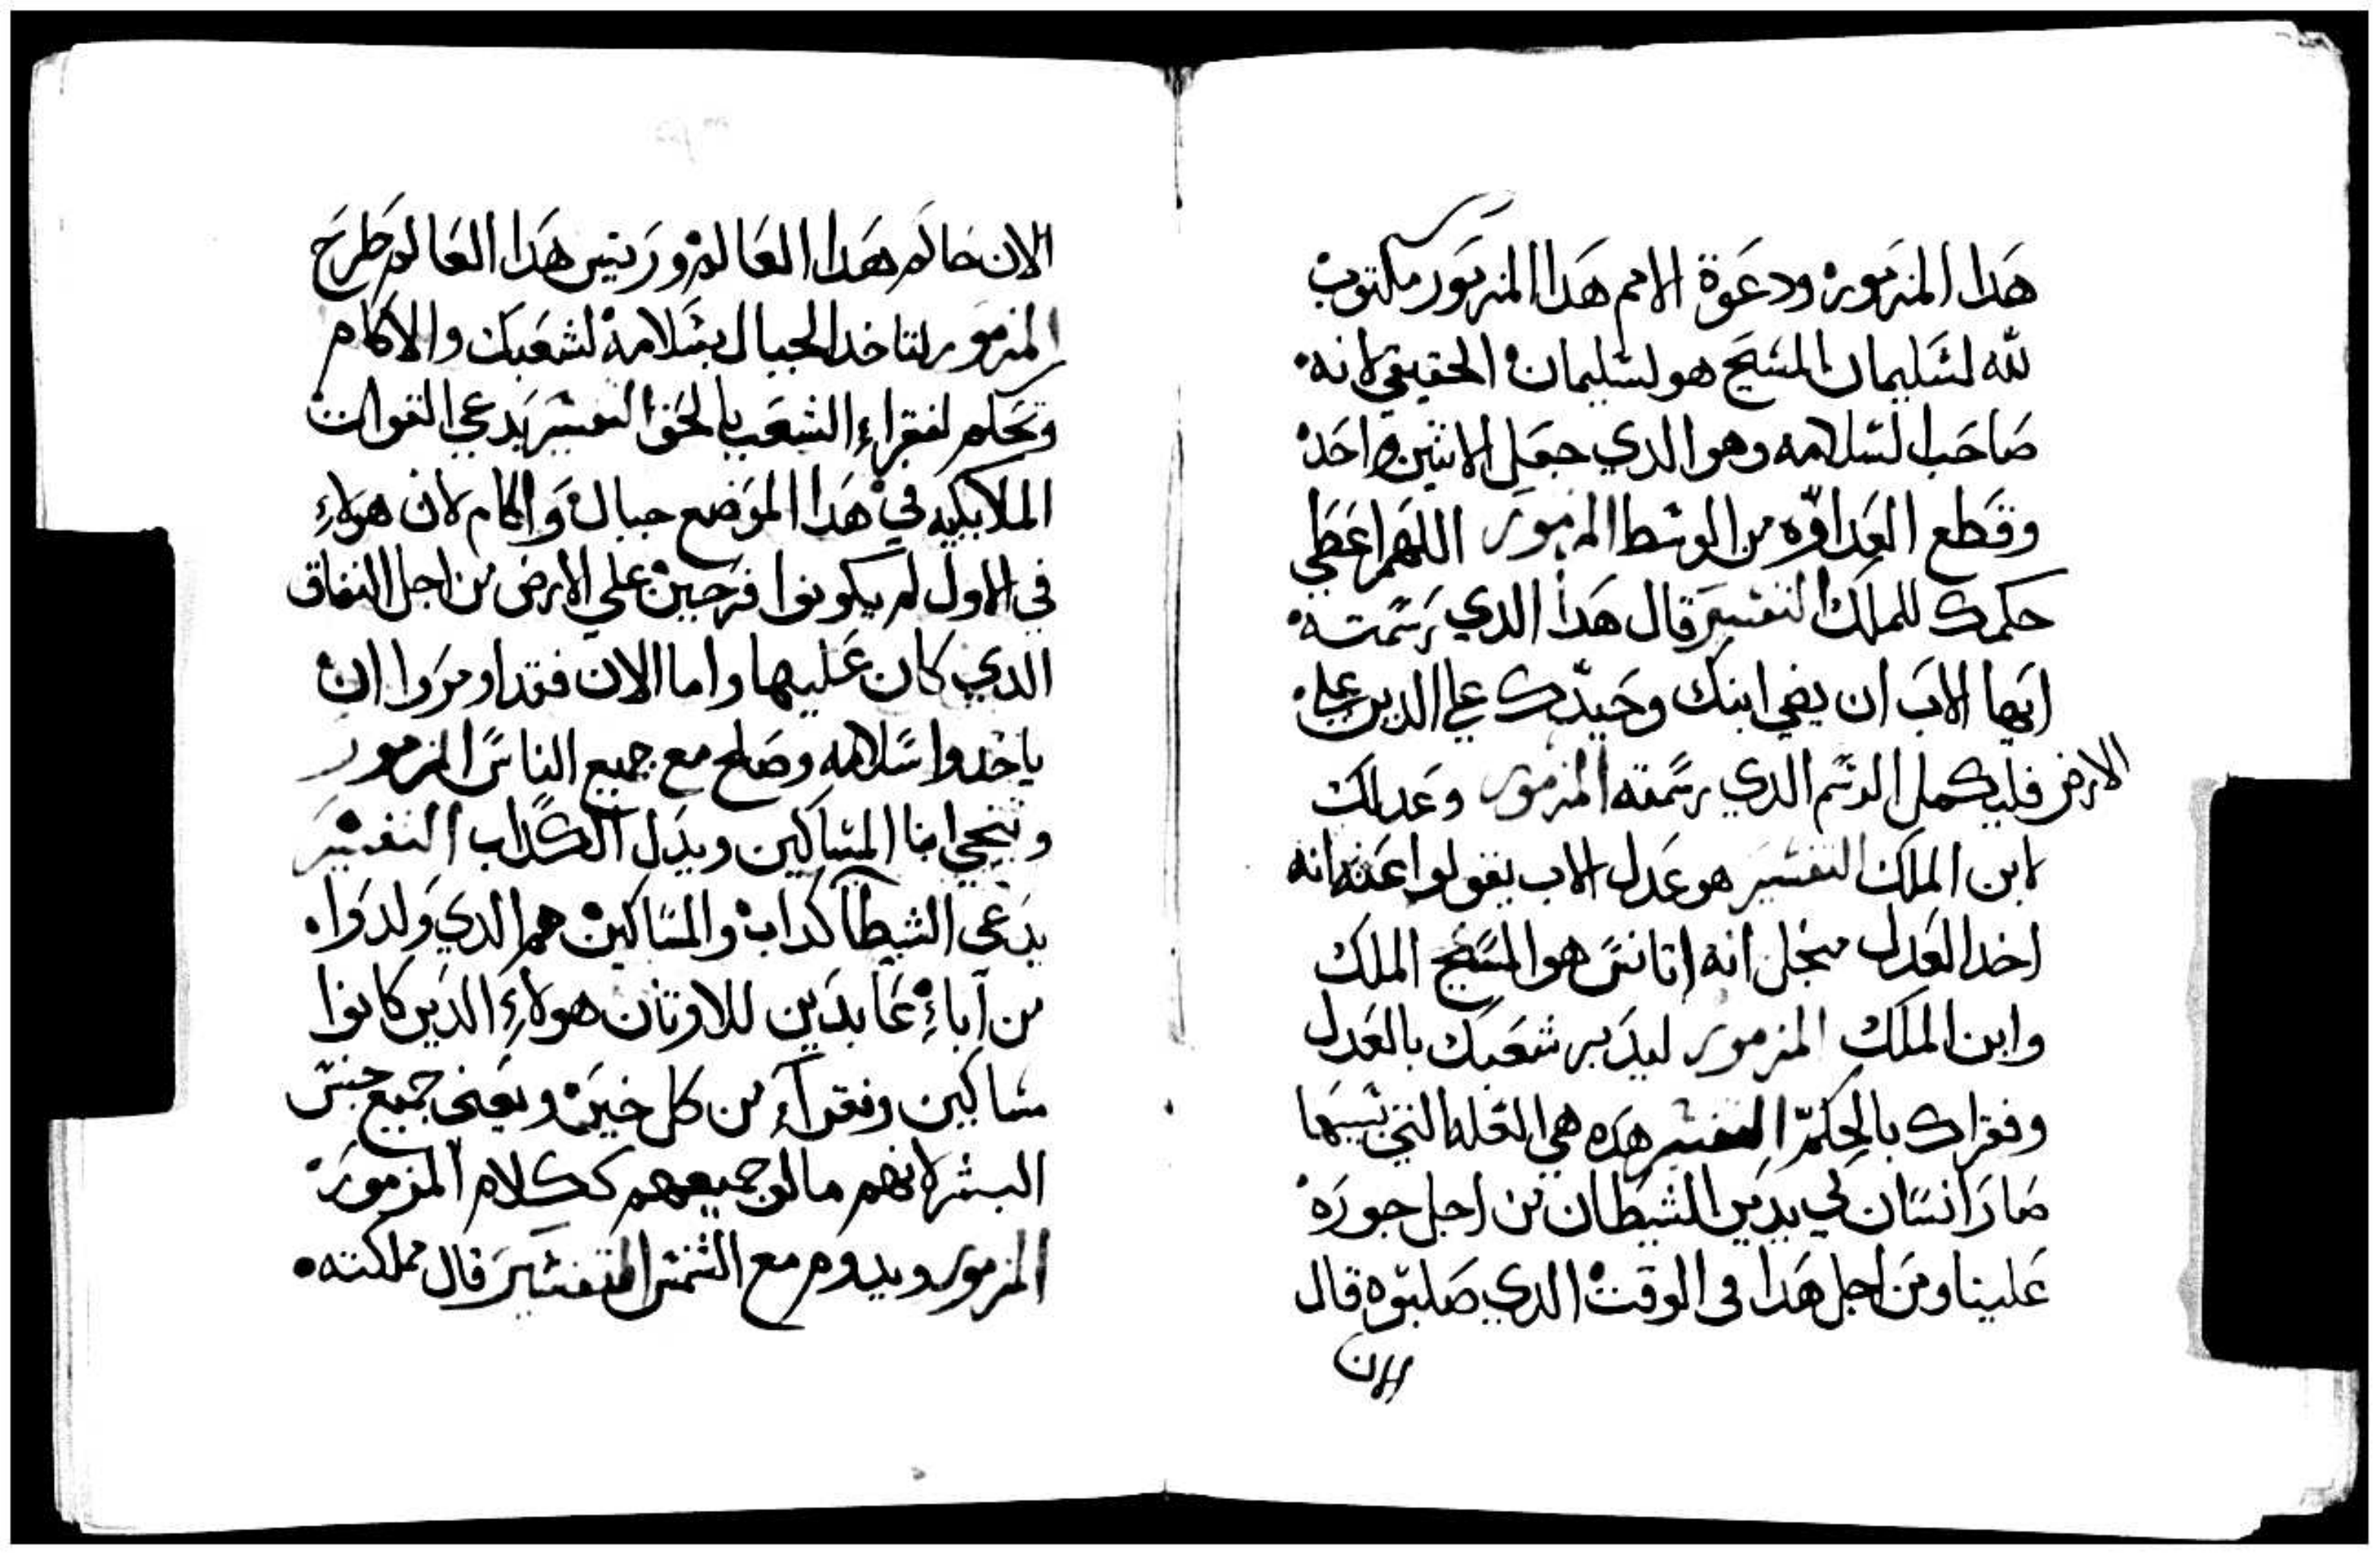 هدا المزمور ودعوة الامم هدا المزمور مكتوب
لله لسليمان المسيح هو لسليمان الحقيقي لانه
صاحب السلامه وهو الدي جعل الاثنين واحد
وقطع العداوه من الوسط المزمور اللهم اعطي
حكمك للملك التفسير قال هدا الدي رسمته
ايها الاب ان يفي ابنك وحيدك علي الدين علي
الارض فليكمل الرسم الدي رسمته المزمور وعدلك
لابن الملك التفسير هو عدل الاب يقولوا عنه انه
اخد العدل من اجل انه اتانس هو المسيح الملك
وابن الملك المزمور ليدبر شعبك بالعدل
وفقراك بالحكم التفسير هده هي العله التي بسببها
صار انسان لي يدين الشيطان من اجل جوره
علينا ومن اجل هدا في الوقت الدي صلبوه قال
الان
الان حاكم هدا العالم ورييس هدا العالم طرح
المزمور لتاخد الجبال بسلامة لشعبك والاكام
وتحكم لفقراء الشعب بالحق التفسير يدعي القوات
الملايكيه في هدا الموضع جبال واكام لان هولاء
في الاول لم يكونوا فرحين علي الارض من اجل النفاق
الدي كان عليها واما الان فقد اومروا ان
ياخدوا سلامه وصلح مع جميع الناس المزمور
وتنجي ابنا المساكين ويدل الكداب التفسير
يدعي الشيطان كداب والمساكين هم الدي ولدوا
من آباء عابدين للاوتان هولاء الدين كانوا
مساكين وفقرآء من كل خير ويعني جميع جنس
البشر لانهم مالو جميعهم ككلام المزمور
المزمور ويدوم مع الشمس التفسير قال مملكته